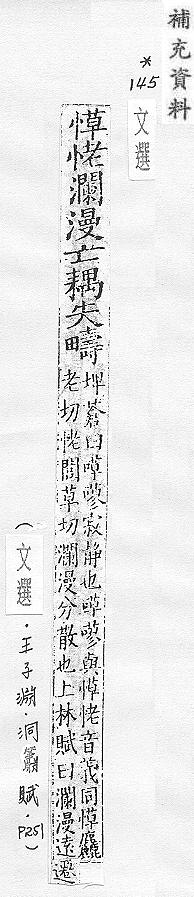 補充資料
*
145
文選
愺恅瀾漫亡耦失疇
埤蒼曰嘽嘐寂靜也嘽嘐與愺恅音義同愺麤
老切恅閭草切瀾漫分散也上林賦曰瀾漫遠遷
(文選.王子淵.洞簫賦.P251)